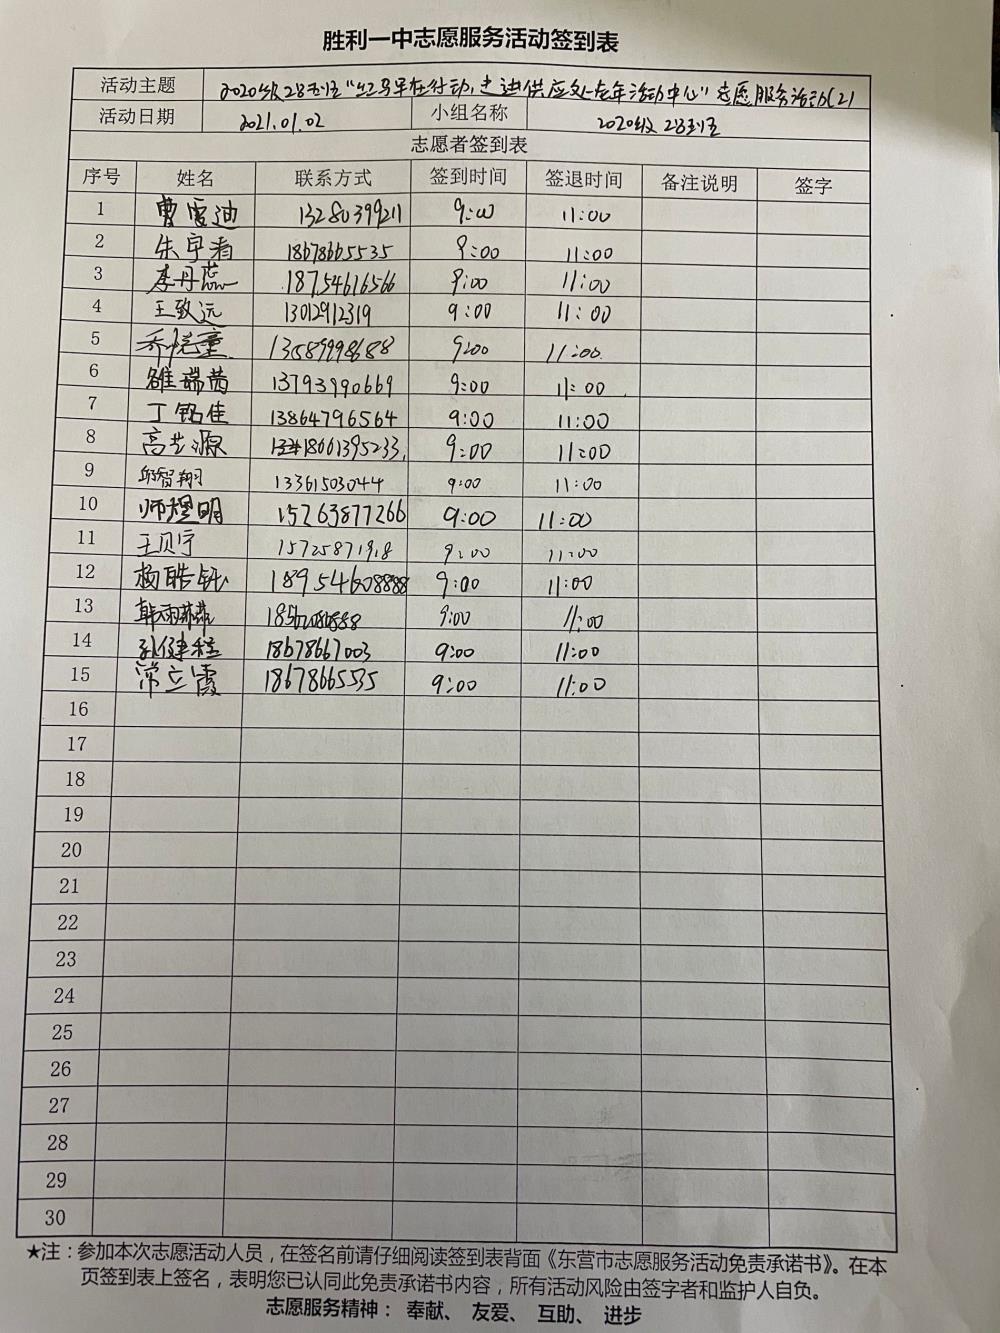 胜利一中志愿服务活动签到表
活动主题 2020级28班"红马甲在行动,走进供应处老年活动中心"志愿服务活动(2)
活动日期 2021.01.02 小组名称 2020级28班
志愿者签到表
序号 姓名 联系方式 签到时间 签退时间 备注说明 签字
1 曹雯迪 13280399211 9:00 11:00
2 朱宇 18678665535 9:00 11:00
3 李丹蕊 18754616566 9:00 11:00
4 王致远 13012912319 9:00 11:00
5 乔悦童 13589998688 9:00 11:00
6 雒瑞茜 13793990669 9:00 11:00
7 丁铭佳 13864796564 9:00 11:00
8 高艺源 18661395233 9:00 11:00
9 邱智翔 13361503044 9:00 11:00
10 师煜明 15263877266 9:00 11:00
11 王贝宁 15725871918 9:00 11:00
12 杨皓钰 18954608888 9:00 11:00
13 韩雨 9:00 11:00
14 孙健程 18678667003 9:00 11:00
15 常立霞 18678665535 9:00 11:00
16
17
18
19
20
21
22
23
24
25
26
27
28
29
30
★注：参加本次志愿活动人员，在签名前请仔细阅读签到表背面《东营市志愿服务活动免责承诺书》。在本
页签到表上签名，表明您已认同此免责承诺书内容，所有活动风险由签字者和监护人自负。
志愿服务精神： 奉献、 友爱、 互助、 进步